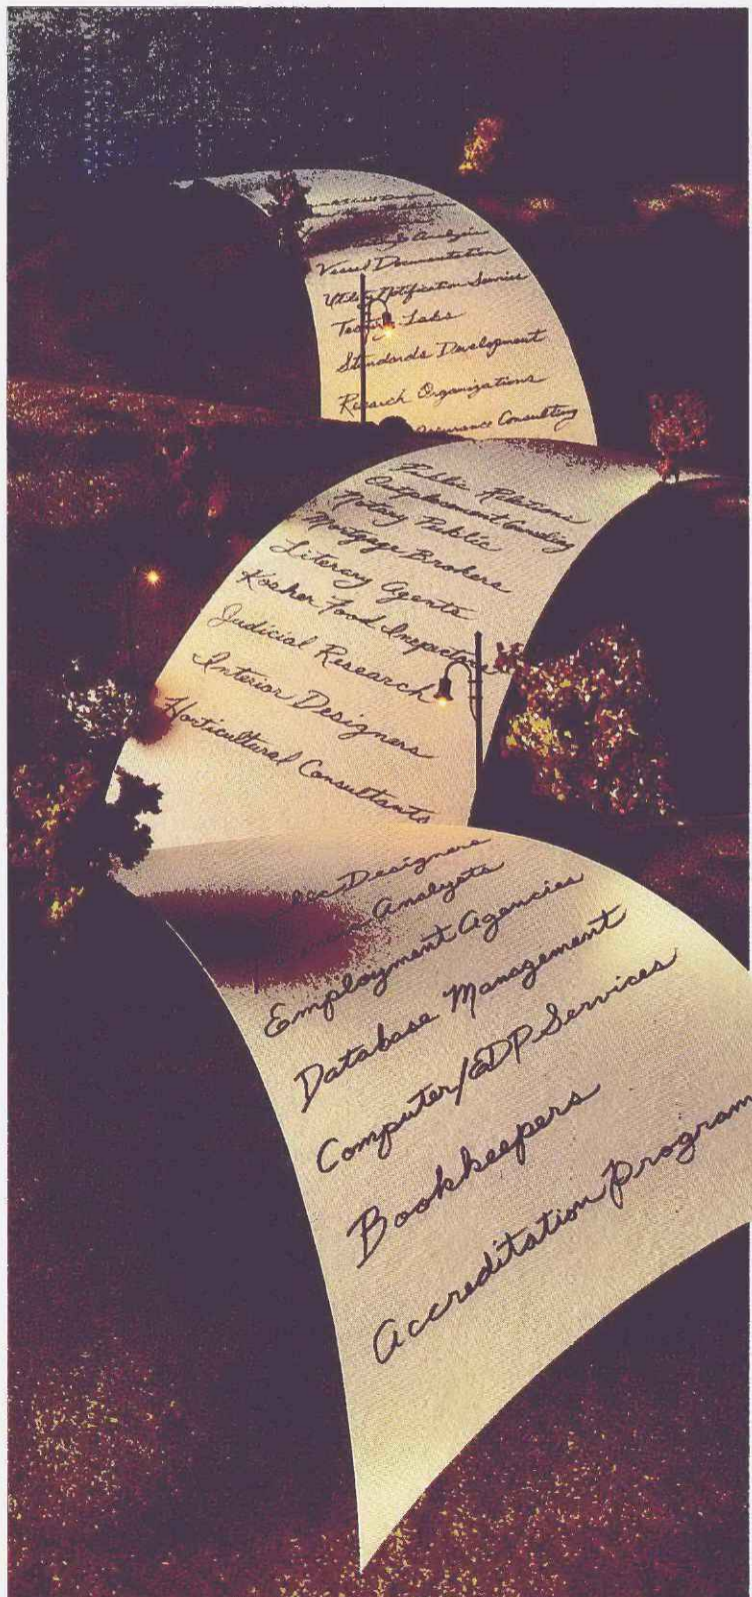 Analysis
Vessel Documentation
Utility Notification Service
Testing Labs
Standards Development
Research Organizations
Assurance Consulting
Public Relations
Outplacement Consulting
Notary Public
Mortgage Brokers
Literary Agents
Kosher Food Inspectors
Judicial Research
Interior Designers
Horticultural Consultants
Designers
Analysts
Employment Agencies
Database Management
Computer/EDP Services
Bookkeepers
Accreditation Program